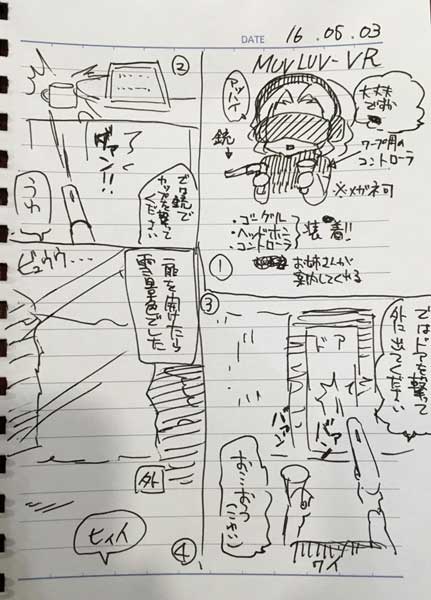 DATE 16.05.03
MUV LUV-VR
アッハイ
大丈夫
ですか
銃
ワープ用の
コントローラ
※メガネ可
・ゴーグル
・ヘッドホン
・コントローラ
装着!!
お姉さんが
案内してくれる
①
②
ダァン!!
では銃で
カップを撃って
ください
うわ
③
ではドアを撃って
外に出てください
ドア
バァン
バァン
ワイ
ビュウウ…
扉を開けたら
雪景色でした
外
ヒィイ
④